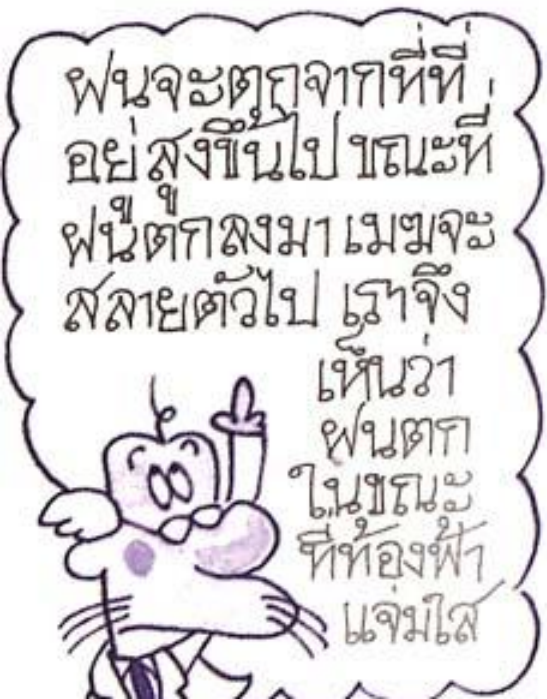 ฝนจะตกจากที่ที่
อยู่สูงขึ้นไป ขณะที่
ฝนตกลงมา เมฆจะ
สลายตัวไป เราจึง
เห็นว่า
ฝนตก
ในขณะ
ที่ท้องฟ้า
แจ่มใส